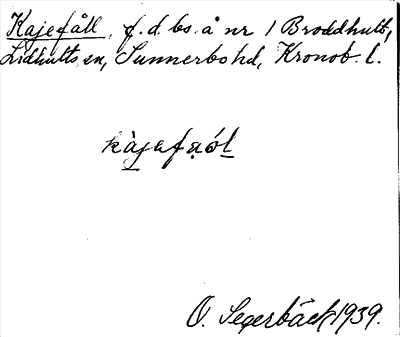 Kajefåll, f.d. bs. å nr 1 Broddhult,
Lidhults sn, Sunnerbo hd, Kronob. l.
kàjefaól
O. Segerbäck 1939.